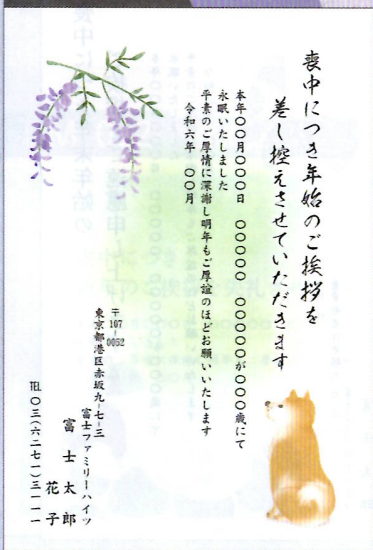 喪中につき年始のご挨拶を
差し控えさせていただきます
本年〇〇月〇〇〇日 〇〇〇〇〇 〇〇〇〇〇が〇〇〇歳にて
永眠いたしました
平素のご厚情に深謝し明年もご厚誼のほどお願いいたします
令和六年 〇〇月
〒107-0052
東京都港区赤坂九-七-三
富士ファミリーハイツ
富士太郎
花子
TEL 〇三(六二七一)三一一一